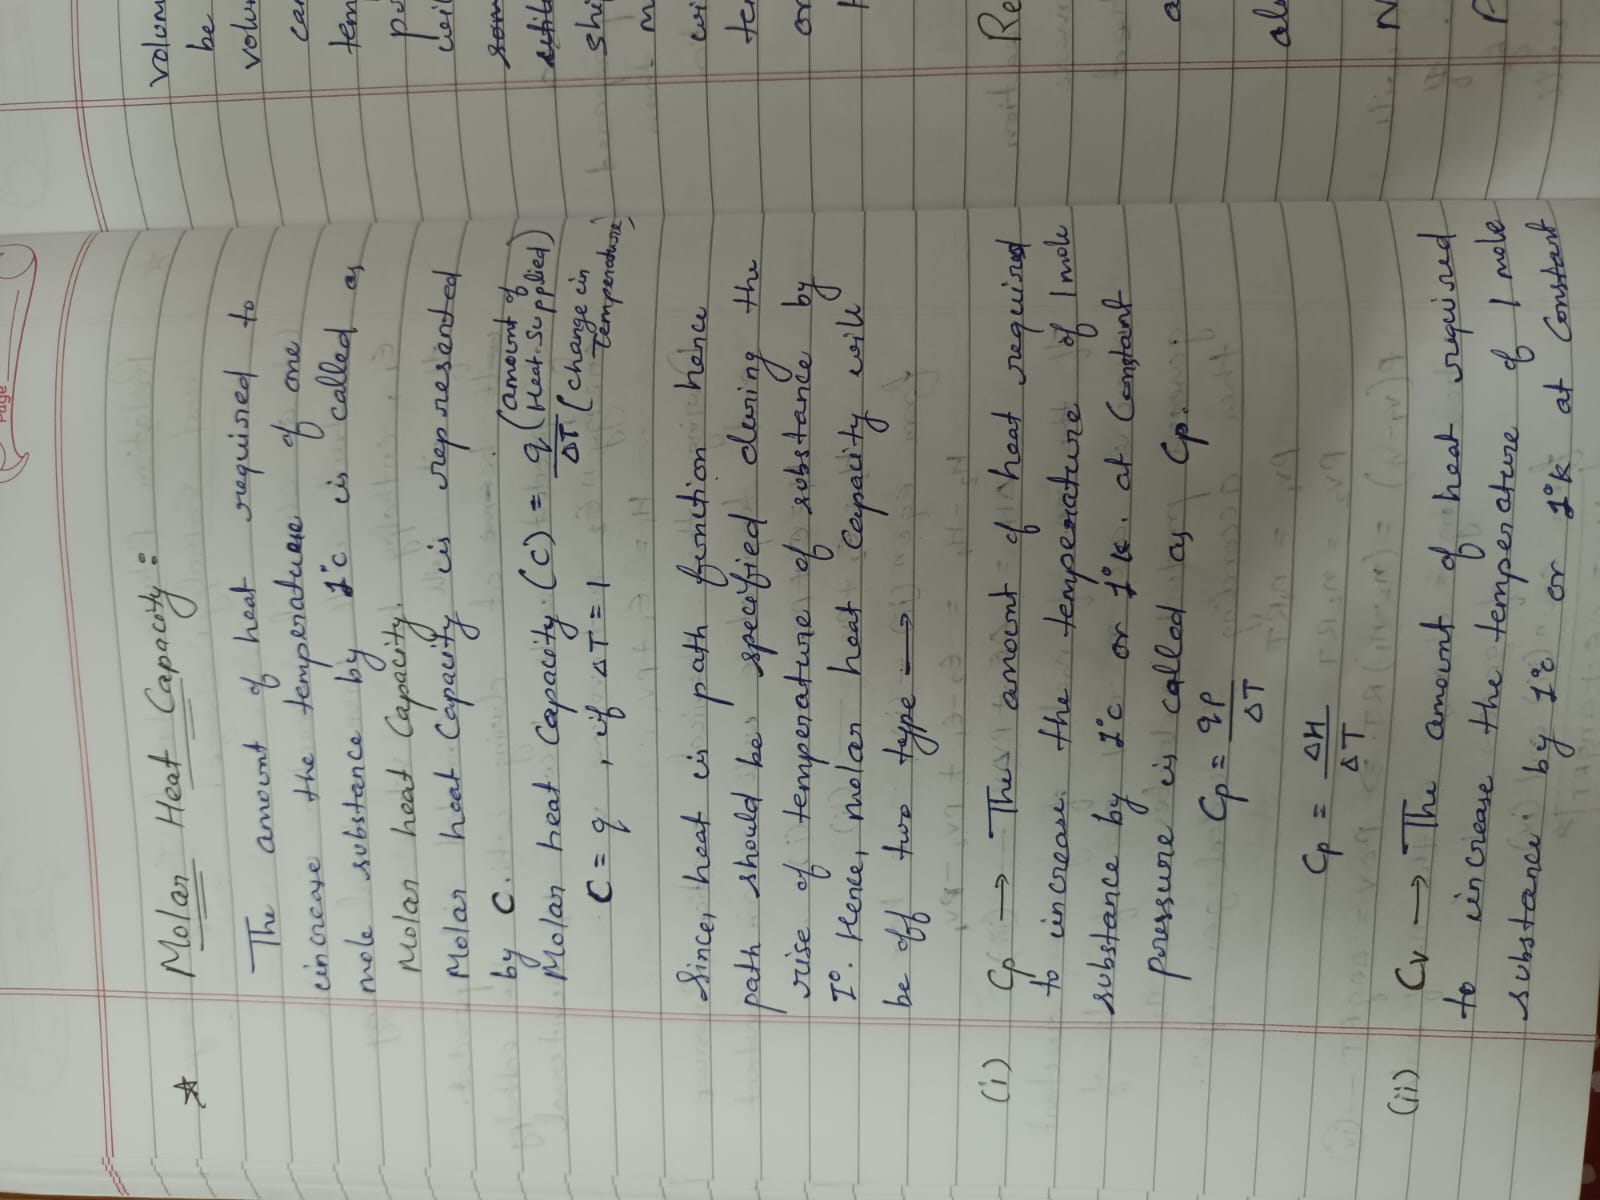 Page
☆ Molar Heat Capacity :
The amount of heat required to
increase the temperature of one
mole substance by 1°C is called as
Molar heat Capacity.
Molar heat Capacity is represented
by C.
Molar heat Capacity (C) = q (amount of Heat supplied) / ΔT (change in Temperature)
C = q , if ΔT = 1
Since, heat is path function hence
path should be specified during the
rise of temperature of substance by
1°. Hence, molar heat Capacity will
be off two type →
(i) Cp → The amount of heat required
to increase the temperature of 1 mole
substance by 1°C or 1°K. at Constant
pressure is called as Cp.
Cp = qp / ΔT
Cp = ΔH / ΔT
(ii) Cv → The amount of heat required
to increase the temperature of 1 mole
substance by 1°C or 1°K at Constant
be
Re